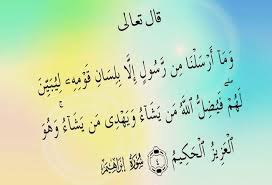 قال تعالى
وَمَآ أَرْسَلْنَا مِن رَّسُولٍ إِلَّا بِلِسَانِ قَوْمِهِۦ لِيُبَيِّنَ
لَهُمْ ۖ فَيُضِلُّ ٱللَّهُ مَن يَشَآءُ وَيَهْدِى مَن يَشَآءُ ۚ وَهُوَ
ٱلْعَزِيزُ ٱلْحَكِيمُ ٤ سُورَةُ إِبْرَاهِيم